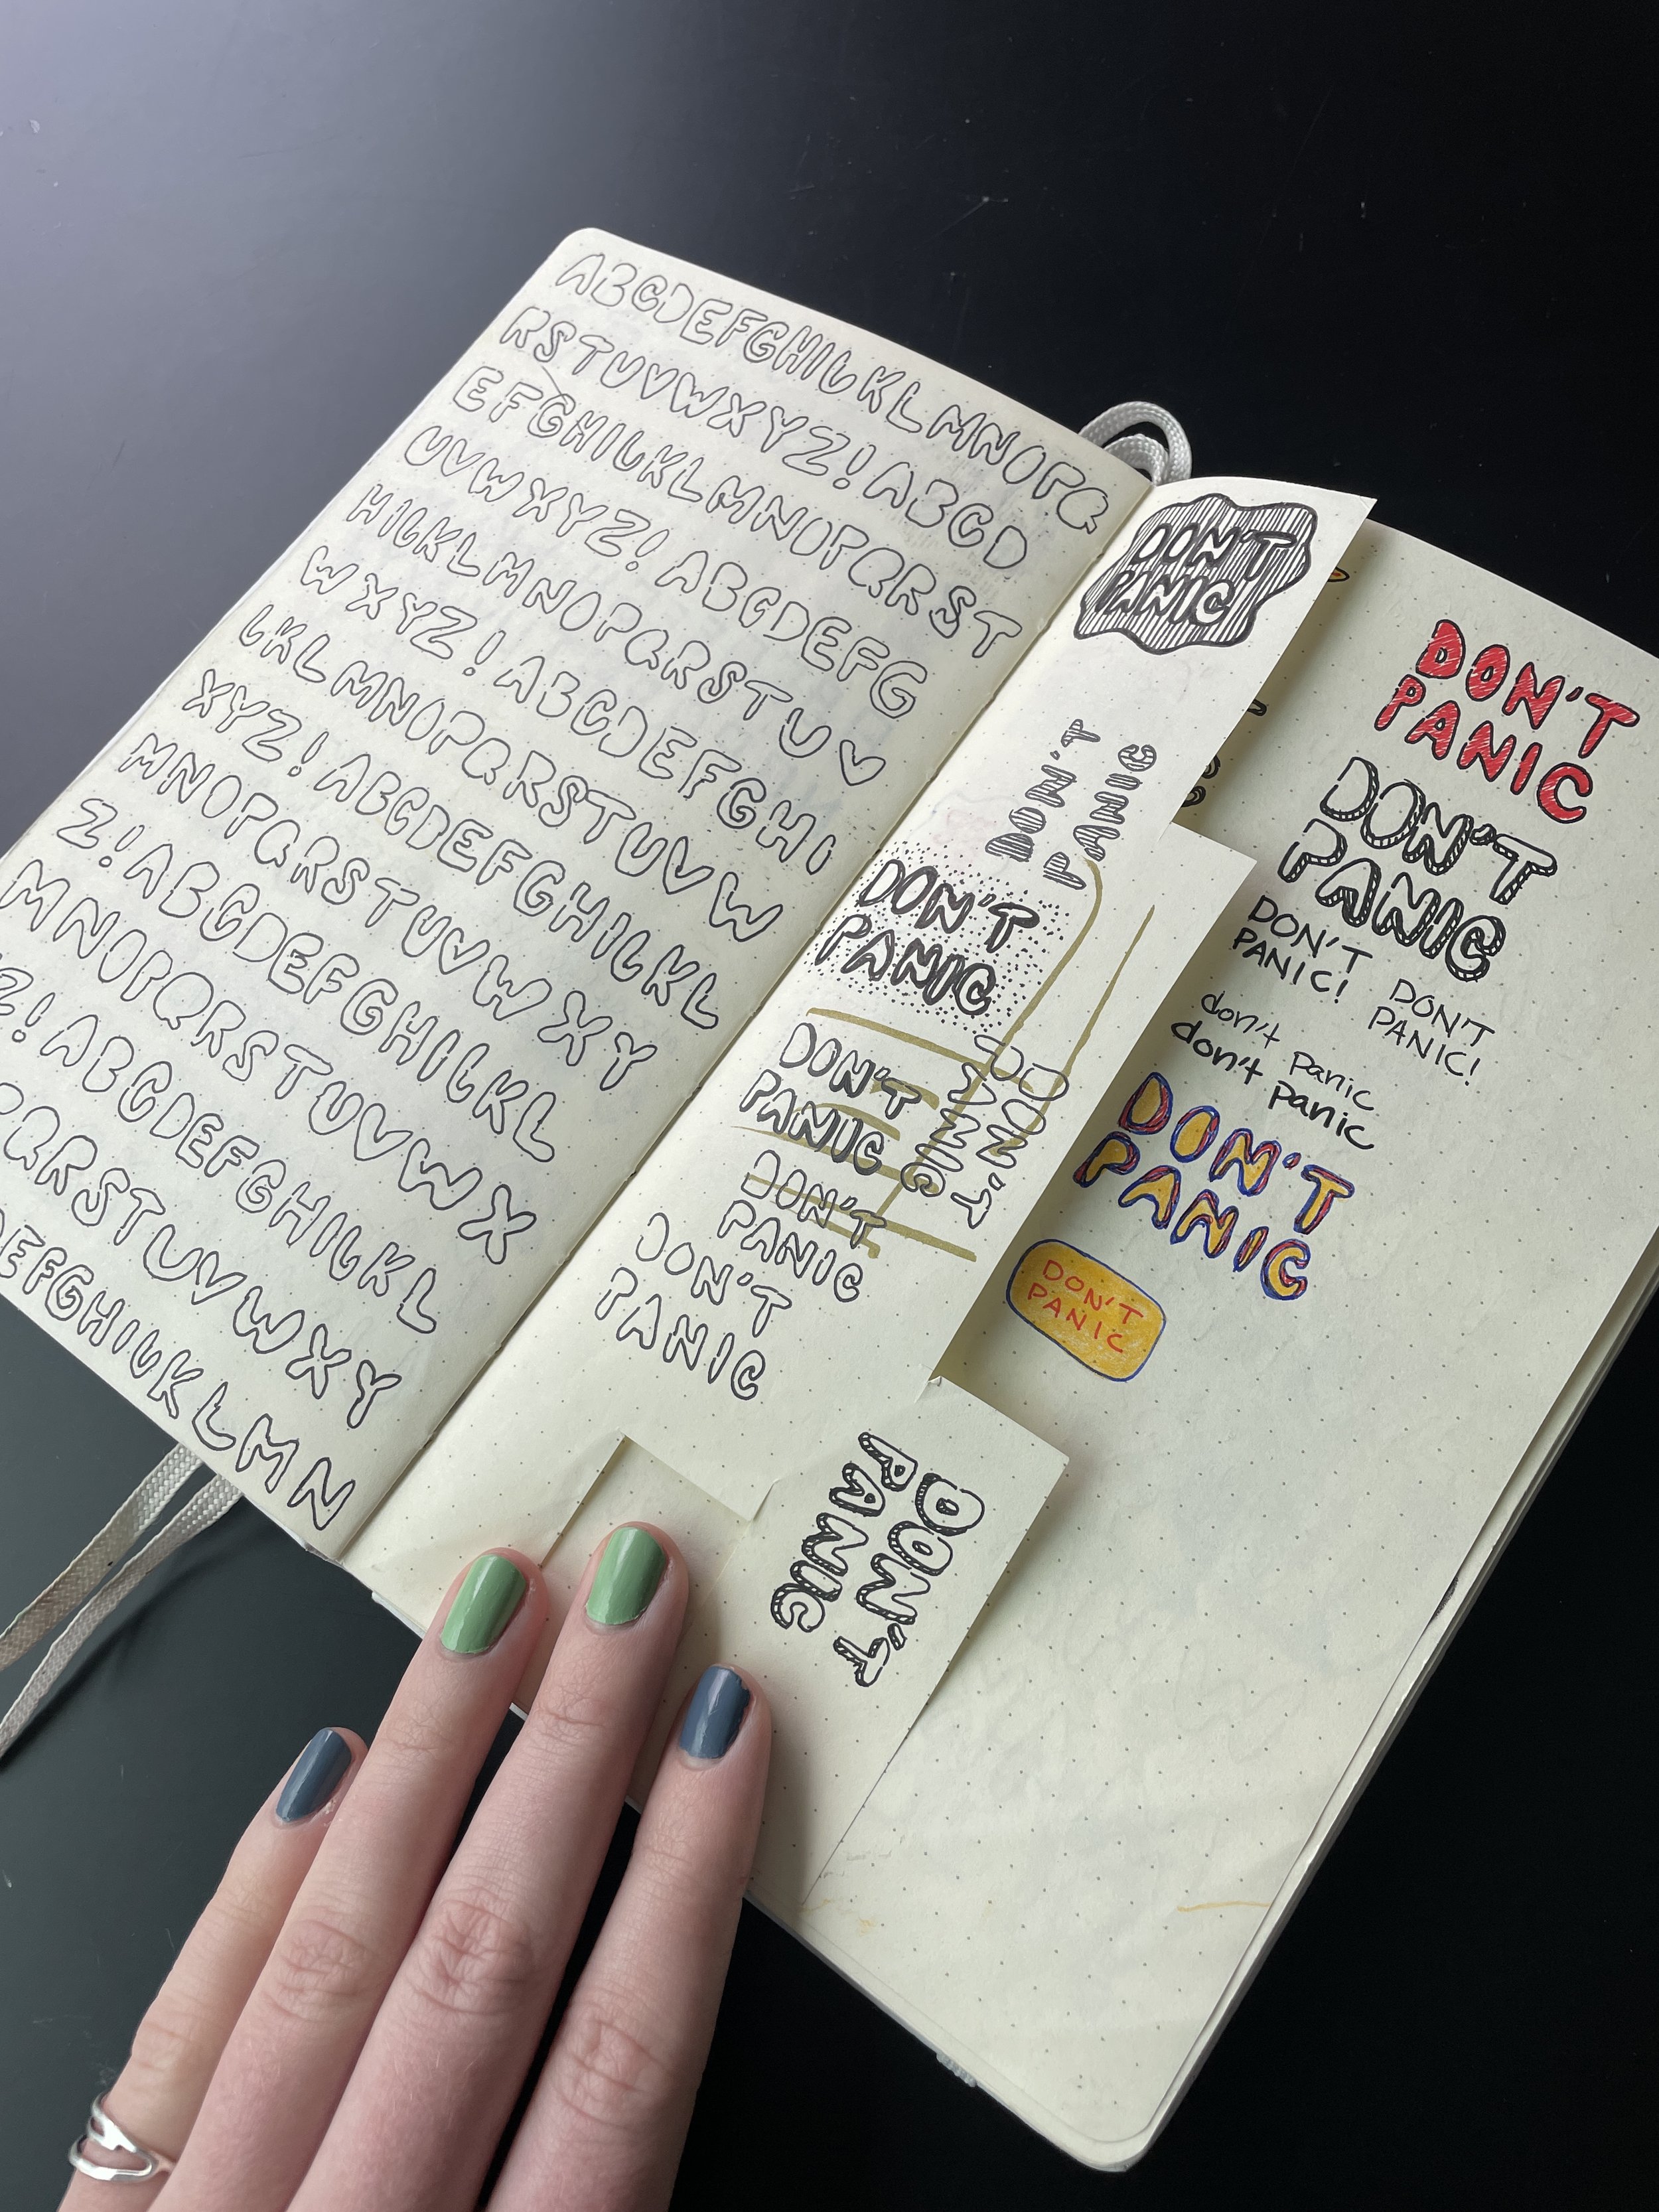 ABCDEFGHIJKLMNOPQ
RSTUVWXYZ! ABCD
EFGHIJKLMNOPQRST
UVWXYZ! ABCDEFG
HIJKLMNOPQRSTUV
WXYZ! ABCDEFGHI
JKLMNOPQRSTUVW
XYZ! ABCDEFGHIJKL
MNOPQRSTUVWXY
Z! ABCDEFGHIJKL
MNOPQRSTUVWX
Z! ABCDEFGHIJKL
QRSTUVWXY
EFGHIJKLMN
DON'T
PANIC
DON'T
PANIC
DON'T
PANIC
DON'T
PANIC
DON'T
PANIC
DON'T
PANIC
DON'T
PANIC
DON'T
PANIC
DON'T
PANIC
DON'T
PANIC
DON'T
PANIC!
DON'T
PANIC!
don't panic
don't panic
DON'T
PANIC
DON'T
PANIC